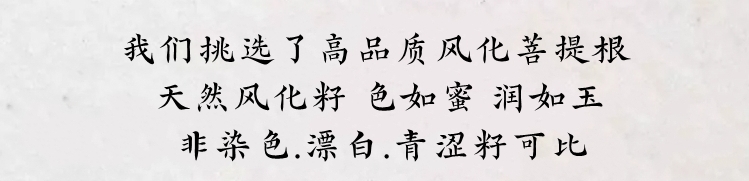 我们挑选了高品质风化菩提根
天然风化籽 色如蜜 润如玉
非染色.漂白.青涩籽可比